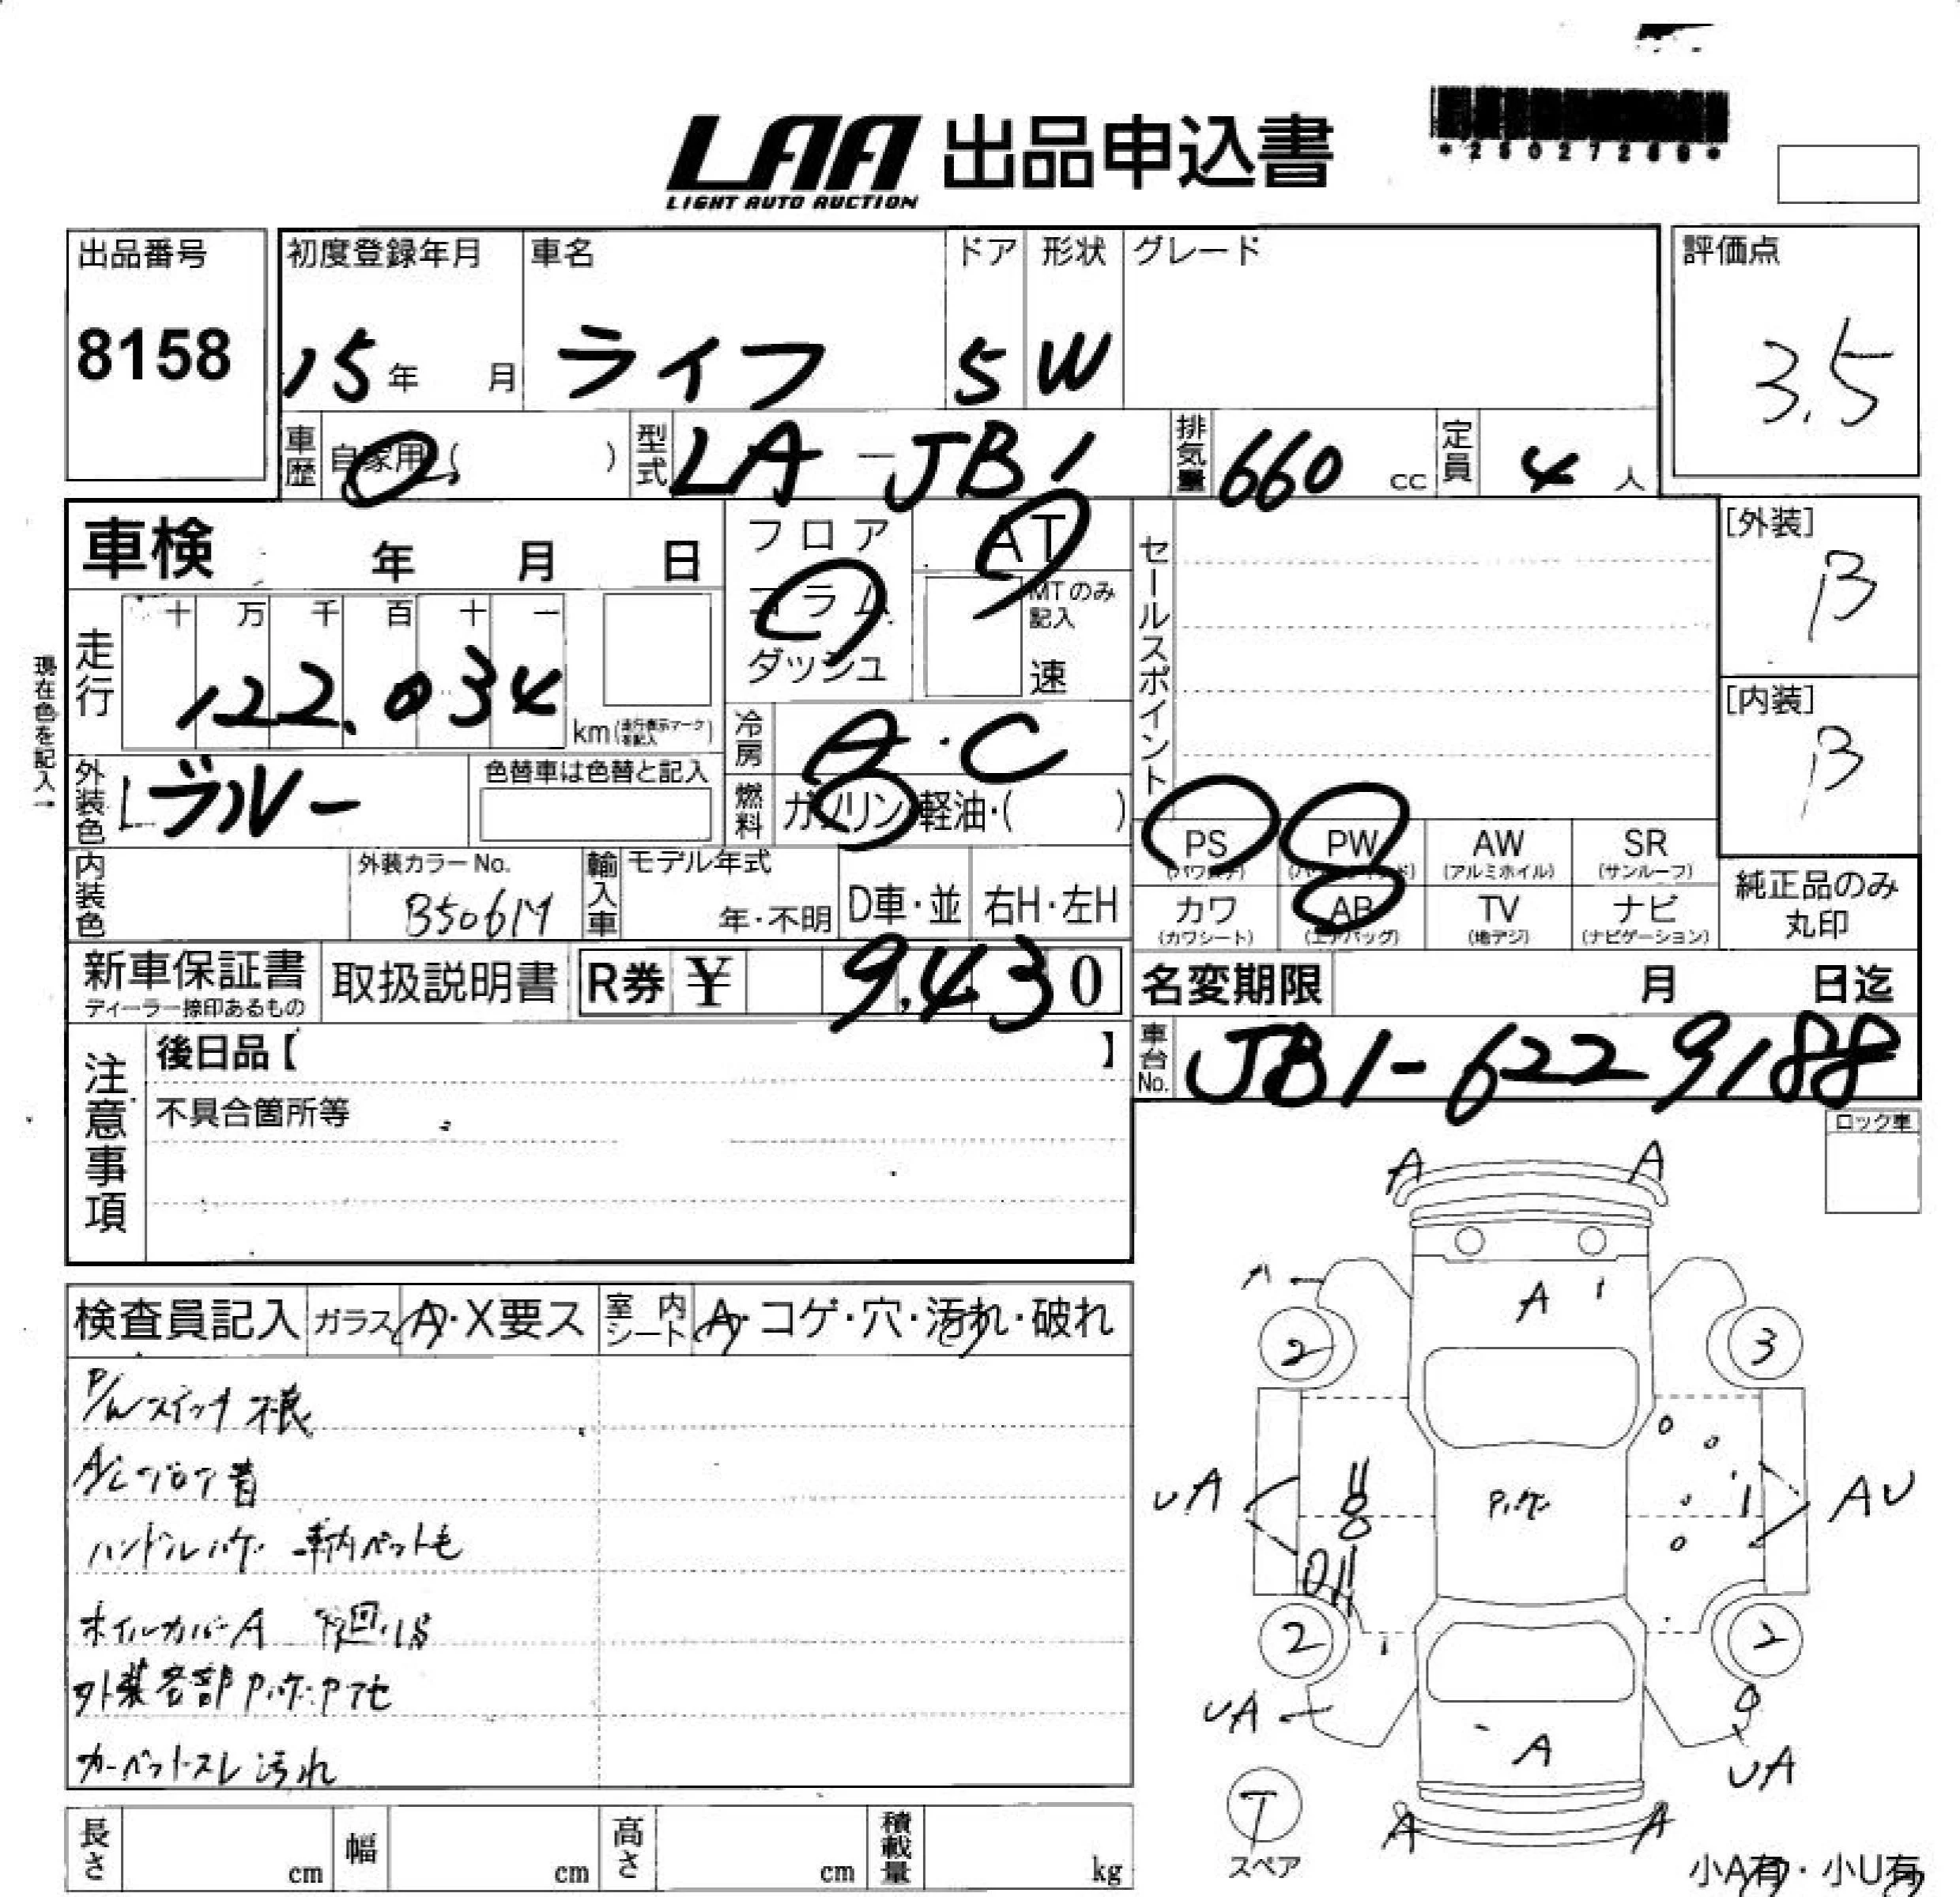 LAA 出品申込書
LIGHT AUTO AUCTION
出品番号
8158
初度登録年月
15年 月
車名
ライフ
ドア
5
形状
W
グレード
評価点
3.5
車歴
自家用 ( )
型式
LA-JB1
排気量
660 cc
定員
4 人
車検 年 月 日
フロア
コラム
ダッシュ
AT
MTのみ記入
速
セールスポイント
[外装]
B
[内装]
B
現在色を記入→
走行
十 万 千 百 十 一
122.034
km (走行表示マークを記入)
冷房
A・C
燃料
ガソリン・軽油・( )
外装色
Lブルー
色替車は色替と記入
内装色
外装カラーNo.
B506M
輸入車
モデル年式
年・不明
D車・並
右H・左H
PS
PW
AW
(アルミホイル)
SR
(サンルーフ)
カワ
(カワシート)
AB
(エアバッグ)
TV
(地デジ)
ナビ
(ナビゲーション)
純正品のみ
丸印
新車保証書
ディーラー捺印あるもの
取扱説明書
R券 ¥ 9,430
名変期限 月 日迄
注意事項
後日品【 】
不具合箇所等
車台No.
JB1-6229188
ロック車
検査員記入
ガラス A・X要ス
室内シート A・コゲ・穴・汚れ・破れ
P/Wスイッチ不良
ハンドルハゲ 車内ペット毛
ホイルカバーA 下回・S
外装各部P.ハゲ・Pアセ
カーペットスレ汚れ
長さ cm
幅 cm
高さ cm
積載量 kg
A A
A
A
2 3
UA
P.ハゲ
AU
2 2
UA
A
UA
T
スペア
A A
小A有・小U有